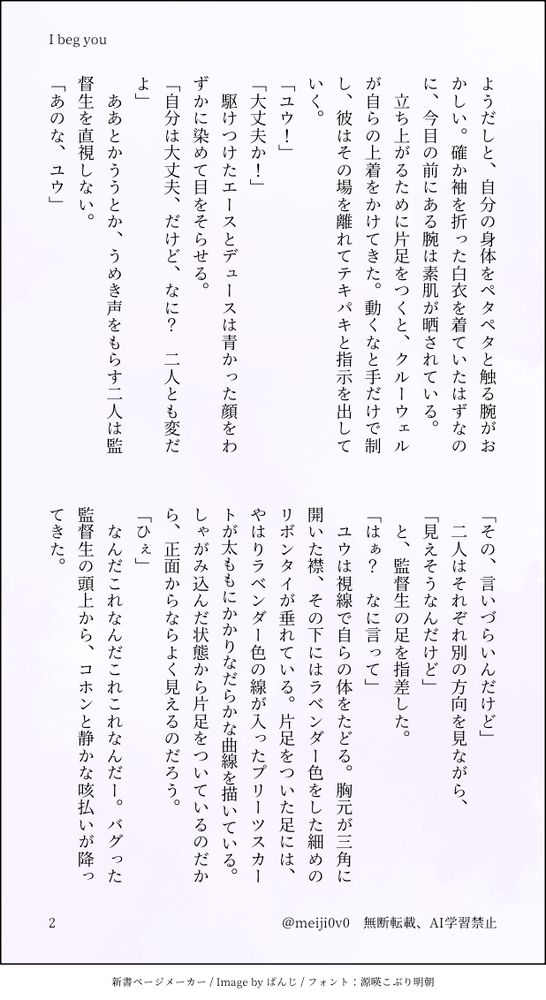 I beg you
ようだしと、自分の身体をペタペタと触る腕がお
かしい。確か袖を折った白衣を着ていたはずなの
に、今目の前にある腕は素肌が晒されている。
　立ち上がるために片足をつくと、クルーウェル
が自らの上着をかけてきた。動くなと手だけで制
し、彼はその場を離れてテキパキと指示を出して
いく。
「ユウ！」
「大丈夫か！」
　駆けつけたエースとデュースは青かった顔をわ
ずかに染めて目をそらせる。
「自分は大丈夫、だけど、なに？　二人とも変だ
よ」
　ああとかううとか、うめき声をもらす二人は監
督生を直視しない。
「あのな、ユウ」
「その、言いづらいんだけど」
　二人はそれぞれ別の方向を見ながら、
「見えそうなんだけど」
　と、監督生の足を指差した。
「はぁ？　なに言って」
　ユウは視線で自らの体をたどる。胸元が三角に
開いた襟、その下にはラベンダー色をした細めの
リボンタイが垂れている。片足をついた足には、
やはりラベンダー色の線が入ったプリーツスカー
トが太ももにかかりなだらかな曲線を描いている。
しゃがみ込んだ状態から片足をついているのだか
ら、正面からならよく見えるのだろう。
「ひぇ」
　なんだこれなんだこれこれなんだー。バグった
監督生の頭上から、コホンと静かな咳払いが降っ
てきた。
2
@meiji0v0　無断転載、AI学習禁止
新書ページメーカー / Image by ぱんじ / フォント：源暎こぶり明朝